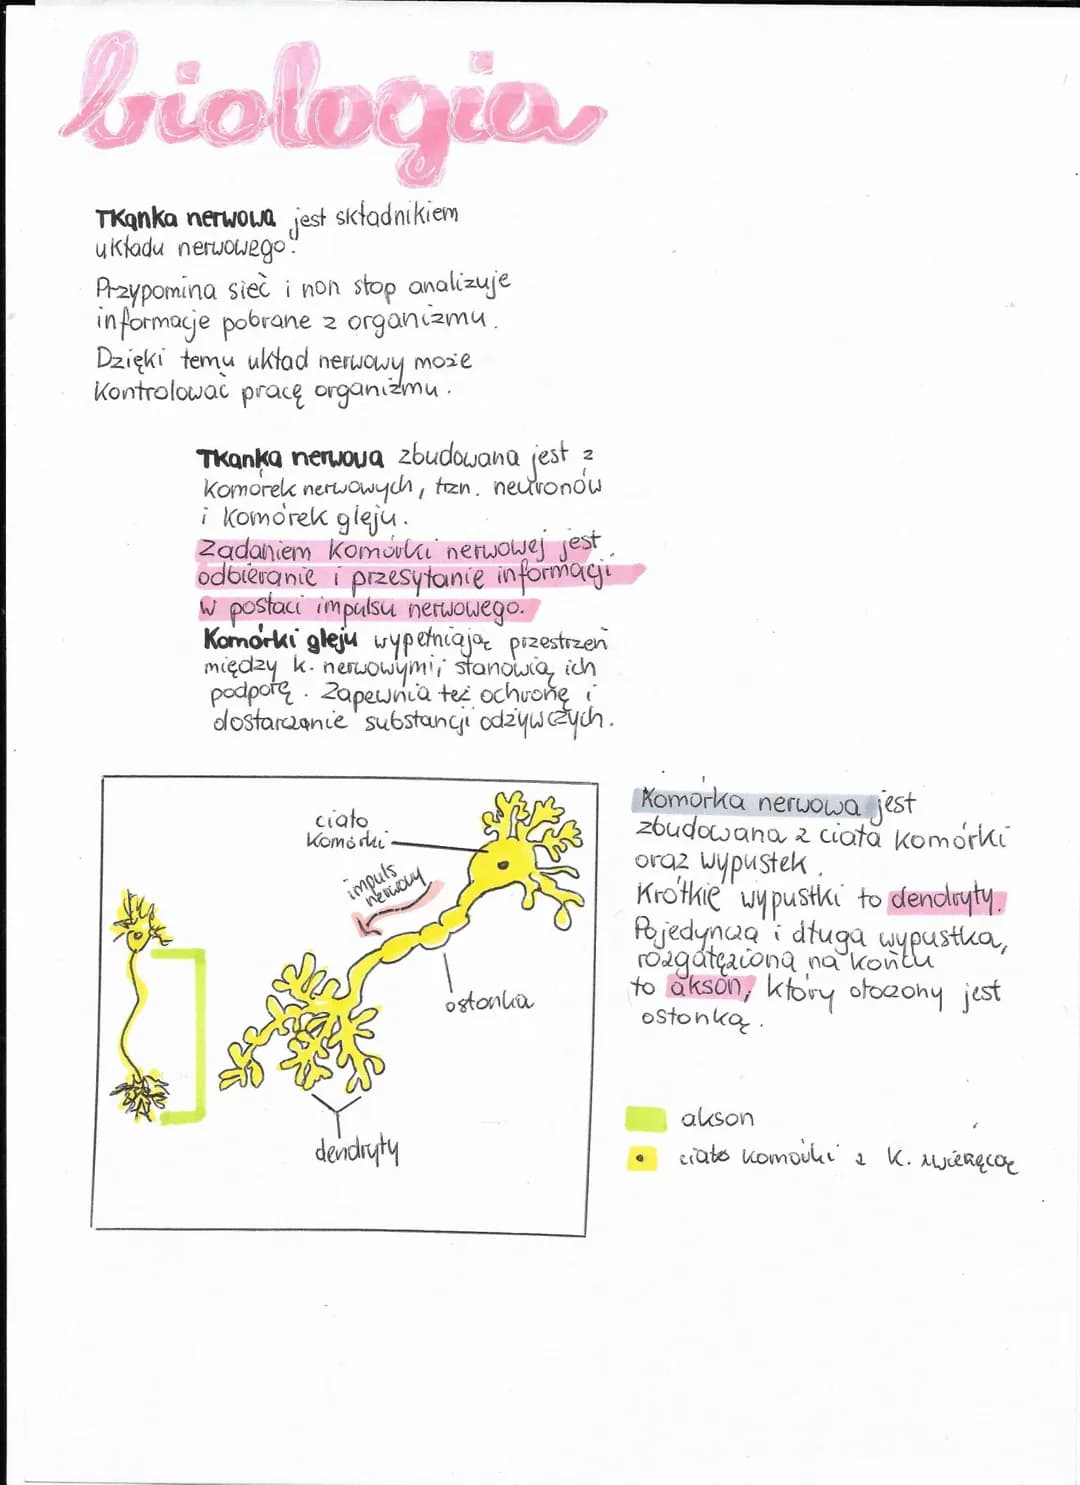 biologia
Tkanka nerwowa jest składnikiem
układu nerwowego.
Przypomina sieć i non stop analizuje
informacje pobrane z organizmu.
Dzięki temu układ nerwowy może
kontrolować pracę organizmu.
Tkanka nerwowa zbudowana jest z
komórek nerwowych, tzn. neuronów
i komórek gleju.
Zadaniem komórki nerwowej jest
odbieranie i przesyłanie informacji
w postaci impulsu nerwowego.
Komórki gleju wypełniają przestrzeń
między k. nerwowymi, stanowią ich
podporę. Zapewnia też ochronę i
dostarczanie substancji odżywczych.
ciało
komórki
impuls
nerwowy
osłonka
dendryty
Komórka nerwowa jest
zbudowana z ciała komórki
oraz wypustek.
Krótkie wypustki to dendryty.
Pojedyncza i długa wypustka,
rozgałęziona na końcu
to akson, który otoczony jest
osłonką.
akson
ciało komórki z k.